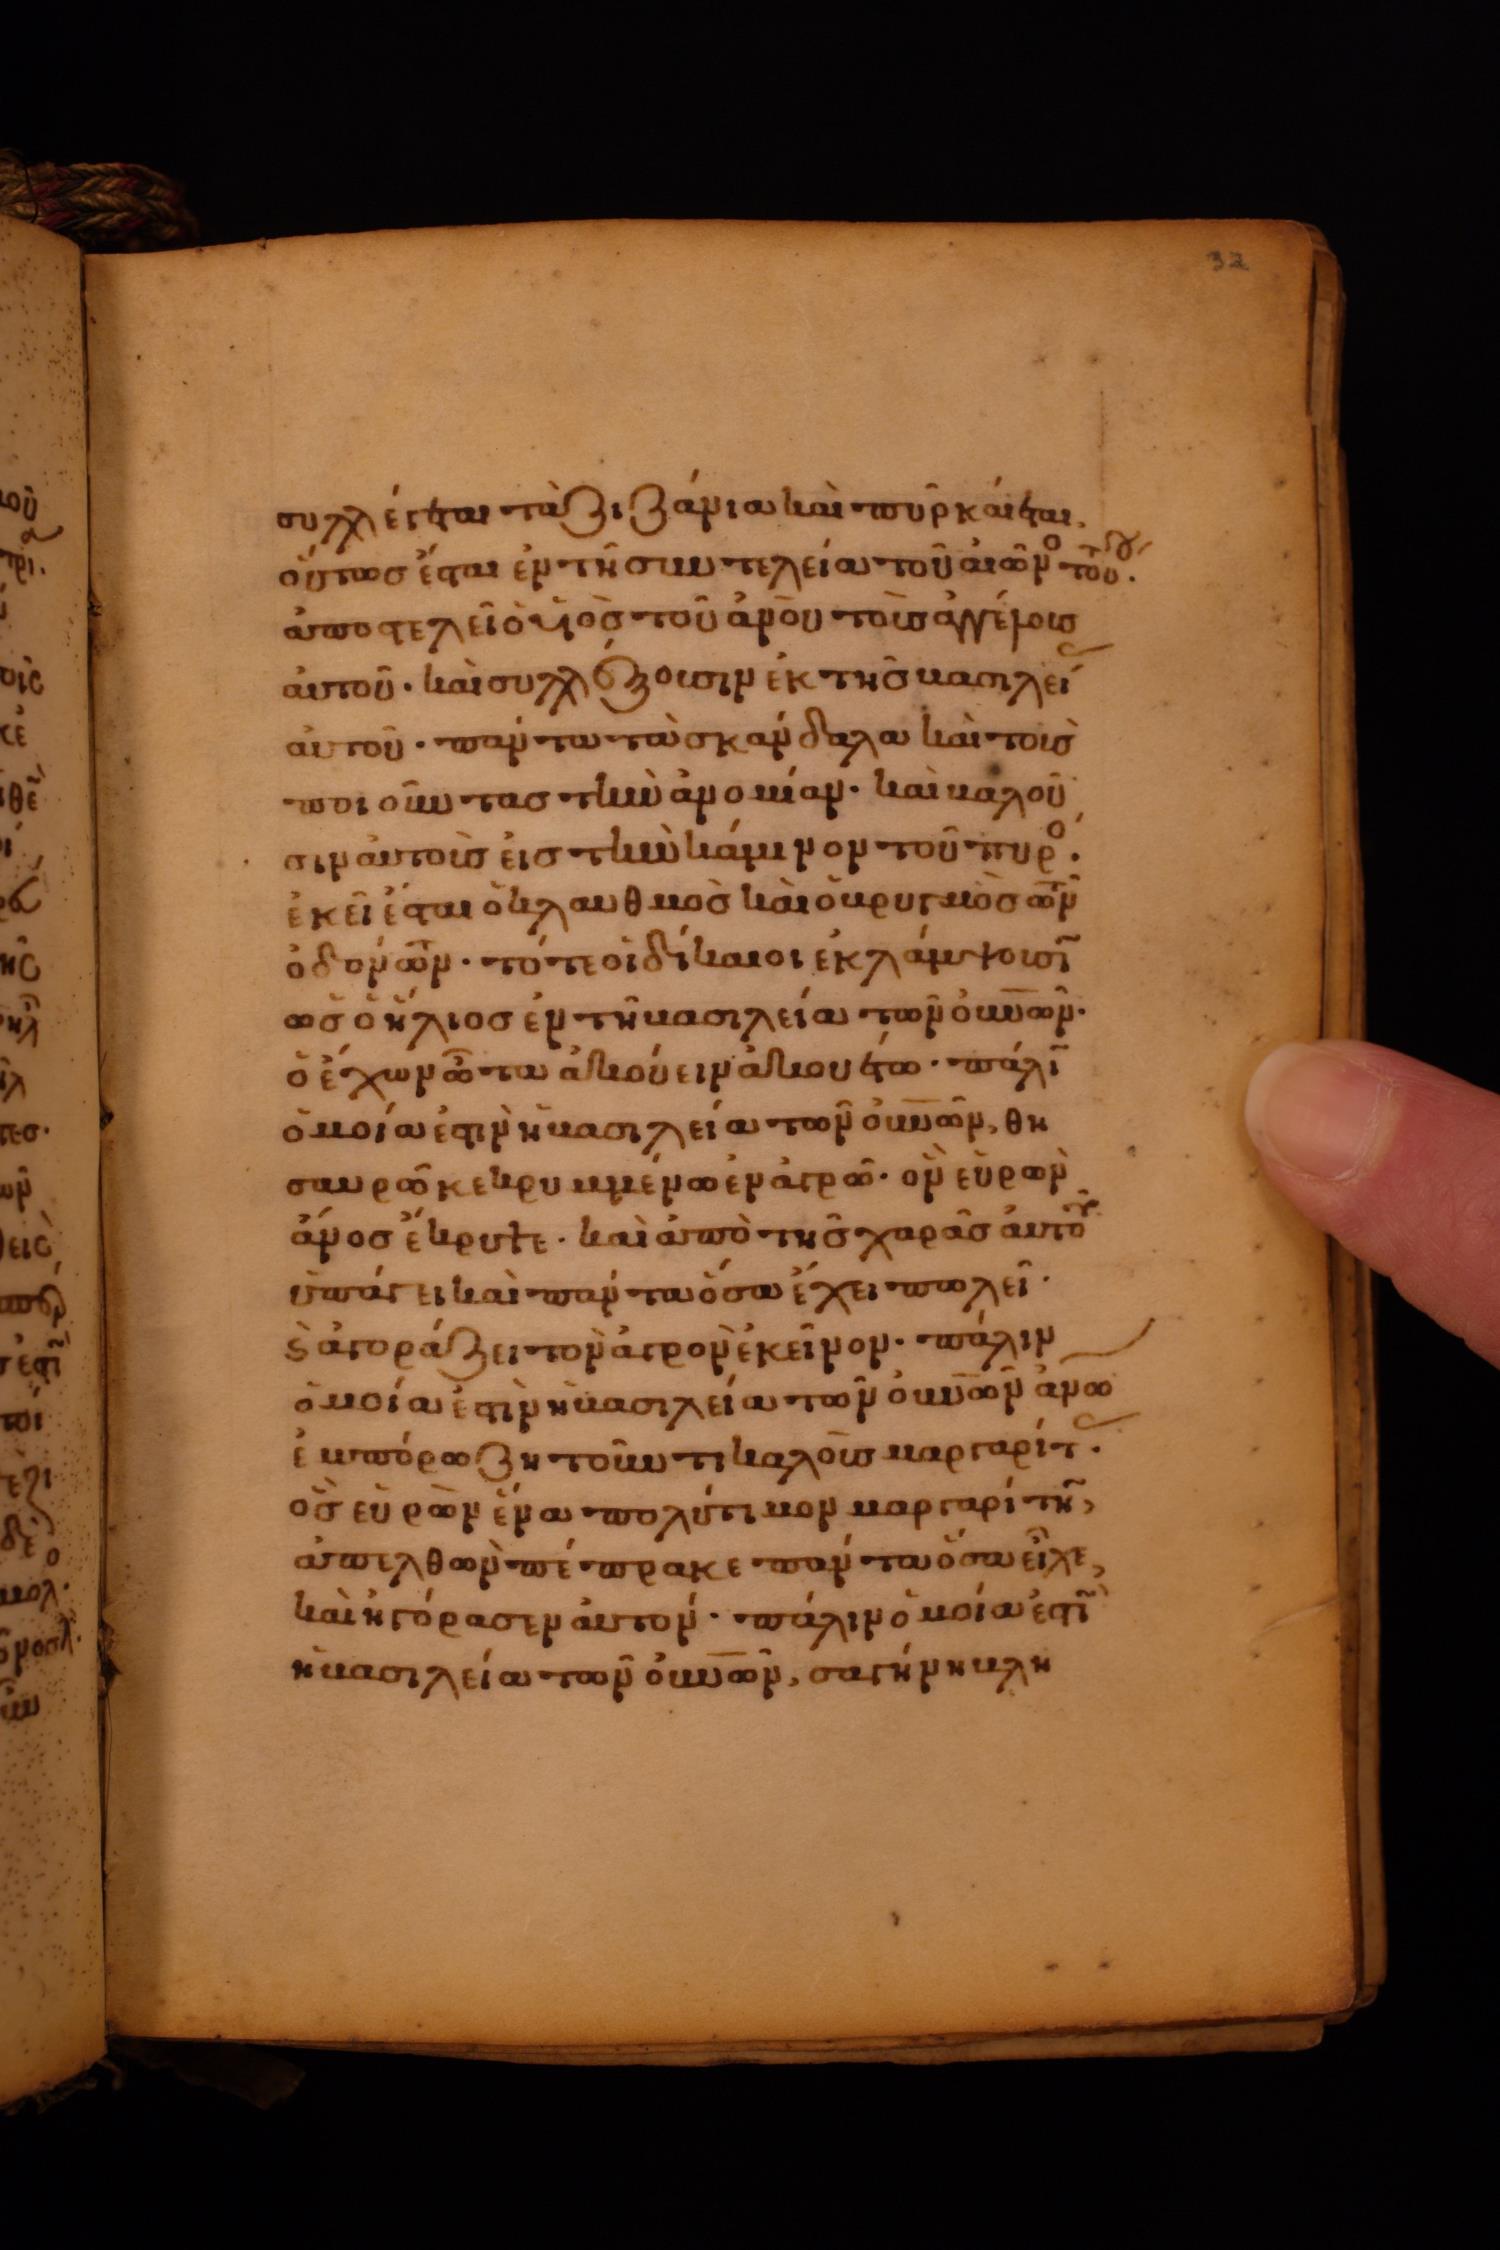 32
συλλέγεται τὰ ζιζάνια καὶ πυρὶ καίεται,
οὕτως ἔσται ἐν τῆ συντελεία τοῦ αἰῶνο τούτου.
ἀποστελεῖ ὁ υἱὸς τοῦ ἀνου τοὺς ἀγγέλους
αὐτοῦ· καὶ συλλέξουσιν ἐκ τῆς βασιλεί
αὐτοῦ· πάντα τὰ σκάνδαλα καὶ τοὺς
ποιοῦντας τὴν ἀνομίαν· καὶ βαλοῦ
σιν αὐτοὺς εἰς τὴν κάμινον τοῦ πυρό·
ἐκεῖ ἔσται ὁ κλαυθμὸς καὶ ὁ βρυγμὸς τῶν
ὀδόντων· τότε οἱ δίκαιοι ἐκλάμψουσῖ
ὡς ὁ ἥλιος ἐν τῆ βασιλεία τῶν οὐνῶν·
ὁ ἔχων ὦτα ἀκούειν ἀκουέτω· πάλῖ
ὁμοία ἐστὶν ἡ βασιλεία τῶν οὐνῶν, θη
σαυρῶ κεκρυμμένω ἐν ἀγρῶ· ὃν εὑρὼν
ἄνος ἔκρυψε· καὶ ἀπὸ τῆς χαρᾶς αὐτοῦ
ὑπάγει καὶ πάντα ὅσα ἔχει πωλεῖ·
ϗ ἀγοράζει τὸν ἀγρὸν ἐκεῖνον· πάλιν
ὁμοία ἐστὶν ἡ βασιλεία τῶν οὐνῶν ἀνω
ἐμπόρω ζητοῦντι καλοὺς μαργαρίτ·
ὃς εὑρὼν ἕνα πολύτιμον μαργαρίτη,
ἀπελθὼν πέπρακε πάντα ὅσα εἶχε,
καὶ ἠγόρασεν αὐτόν· πάλιν ὁμοία ἐστῖ
ἡ βασιλεία τῶν οὐνῶν, σαγήνη βλη